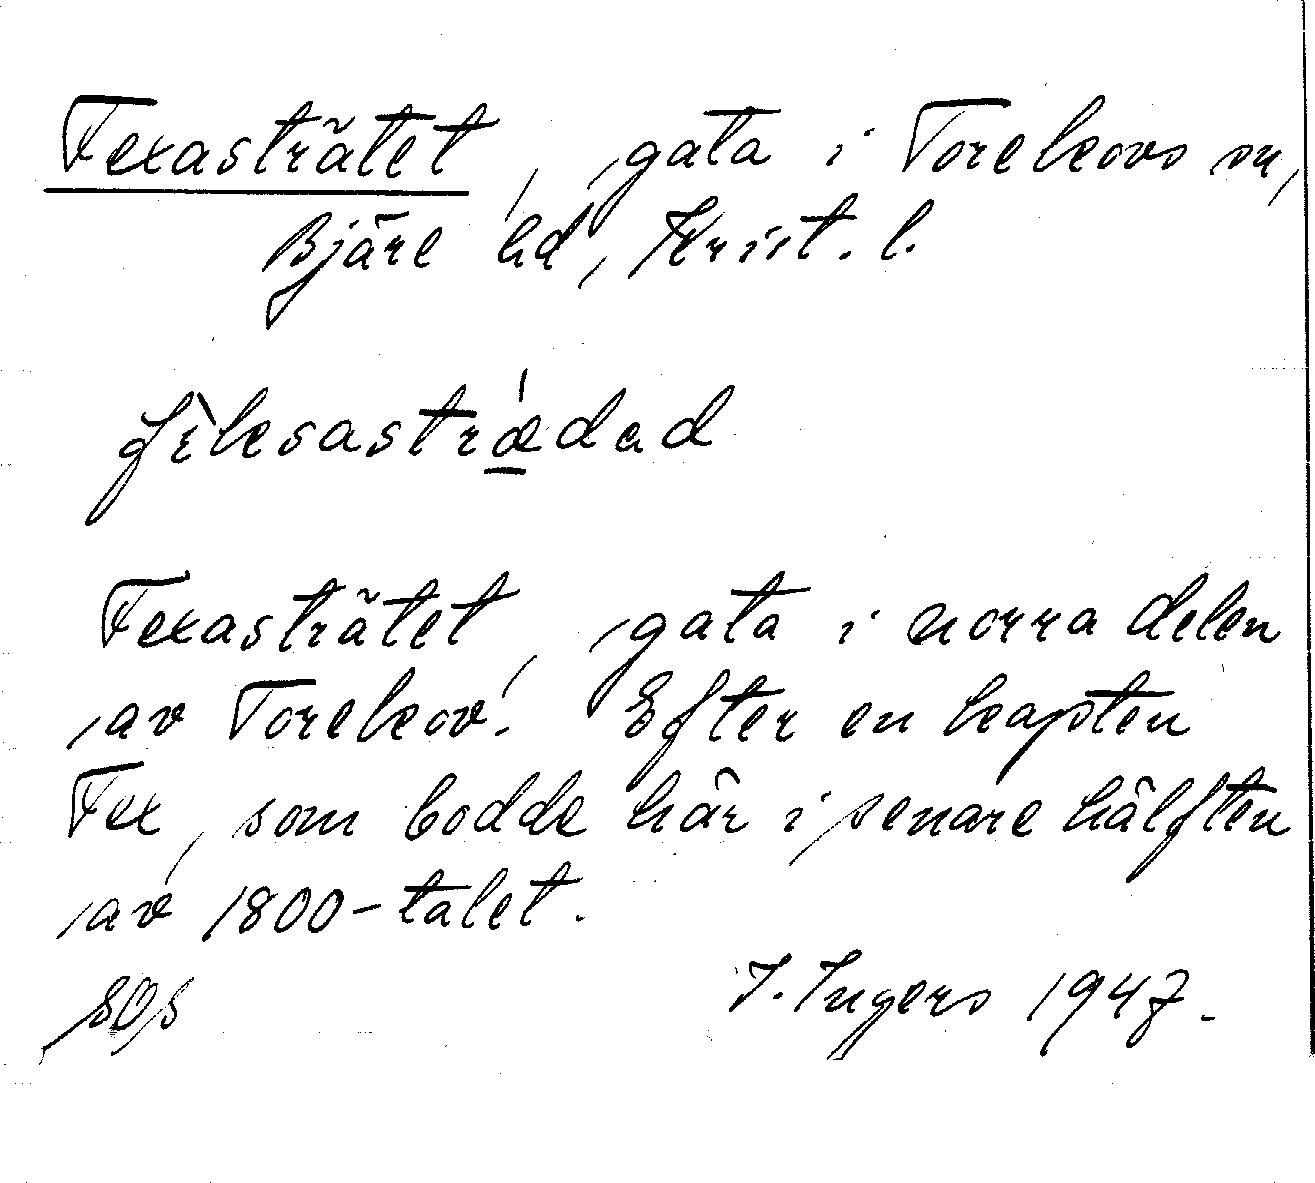 Fexasträtet, gata i Torekovs sn,
Bjäre hd, Krist. l.
Fexasträtet, gata i norra delen
av Torekov. Efter en kapten
Fex, som bodde här i senare hälften
av 1800-talet.
I. Ingers 1947.